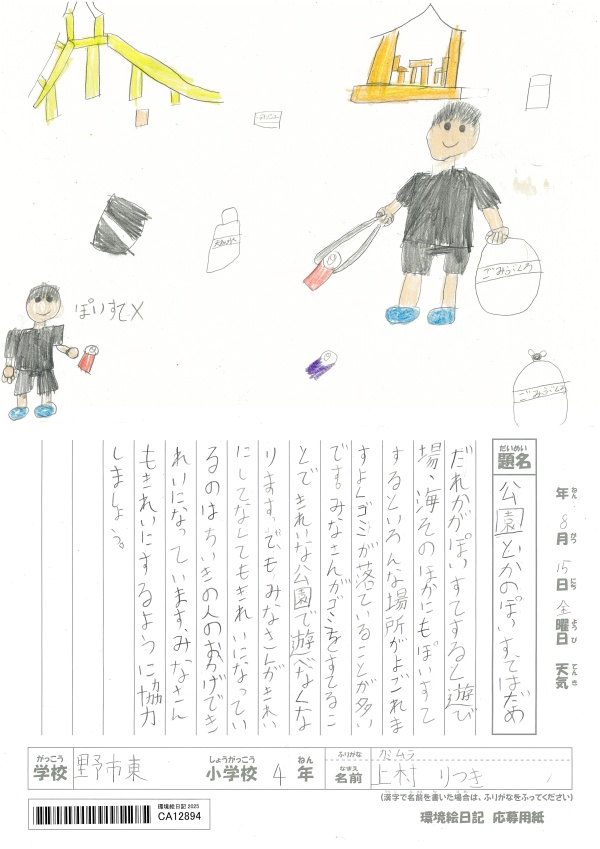 ごみぶくろ
ぽいすて×
ごみぶくろ
年 8月 15日 金曜日 天気
ねん がつ にち ようび てんき
だいめい
題名
公園とかのぽいすてはだめ
だれかがぽいすてすると遊び
場、海そのほかにもぽいすて
するといろんな場所がよごれま
すよ。ゴミが落ちていることが多い
です。みなさんがゴミをすてるこ
とできれいな公園で遊べなくな
ります。でも、みなさんがきれい
にしてなくてもきれいになってい
るのはちいきの人のおかげでき
れいになっています。みなさん
もきれいにするように協力
しましょう。
がっこう
学校 野市東
しょうがっこう
小学校 4 年
ねん
ふりがな カミムラ
なまえ
名前 上村 りつき
(漢字で名前を書いた場合は、ふりがなをふってください)
環境絵日記 2025
CA12894
環境絵日記 応募用紙